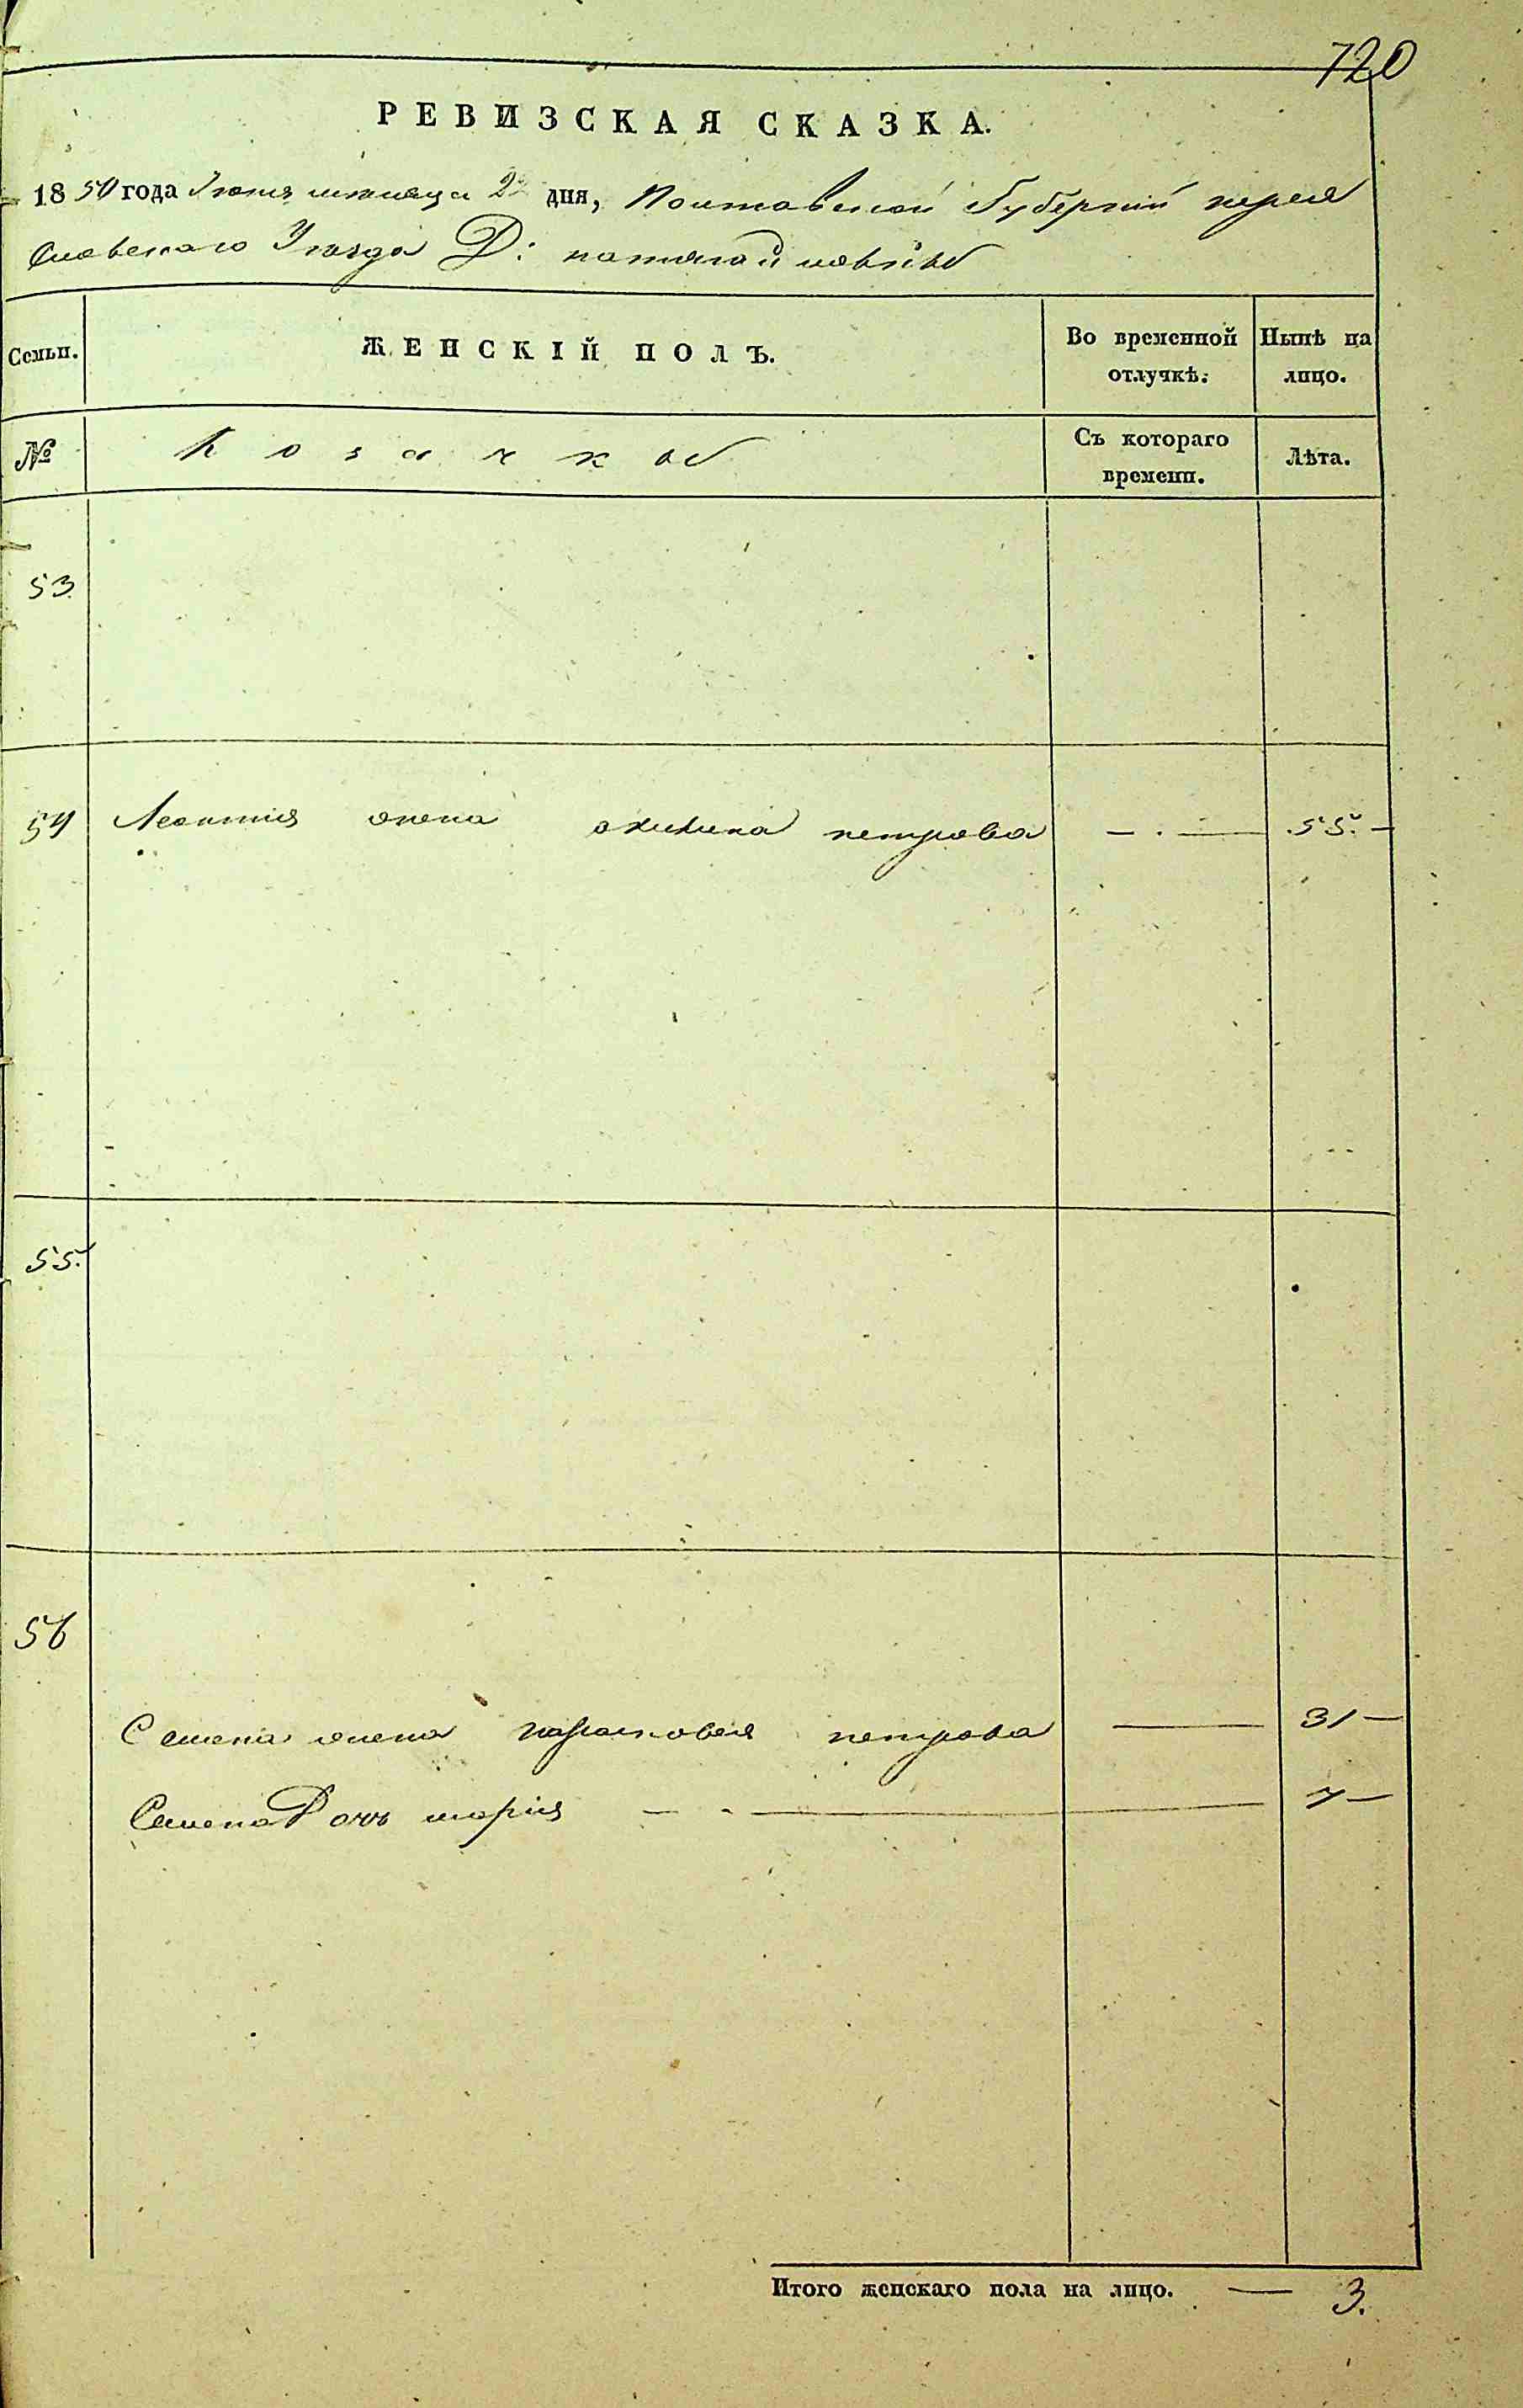 720
РЕВИЗСКАЯ СКАЗКА.
1850 года Июня месяца 2 дня, Полтавской Губернии перея
славскаго Уезда Д:
Семьи. ЖЕНСКІЙ ПОЛЪ. Во временной отлучкѣ. Нынѣ на лицо.
№ Козачки Съ котораго времени. Лѣта.
53.
54 Леонтия жена акилина петрова — . — 55. —
55.
56
Семена жена парасковея петрова — 31 —
Семена Дочь марія — 7 —
Итого женскаго пола на лицо. — 3.